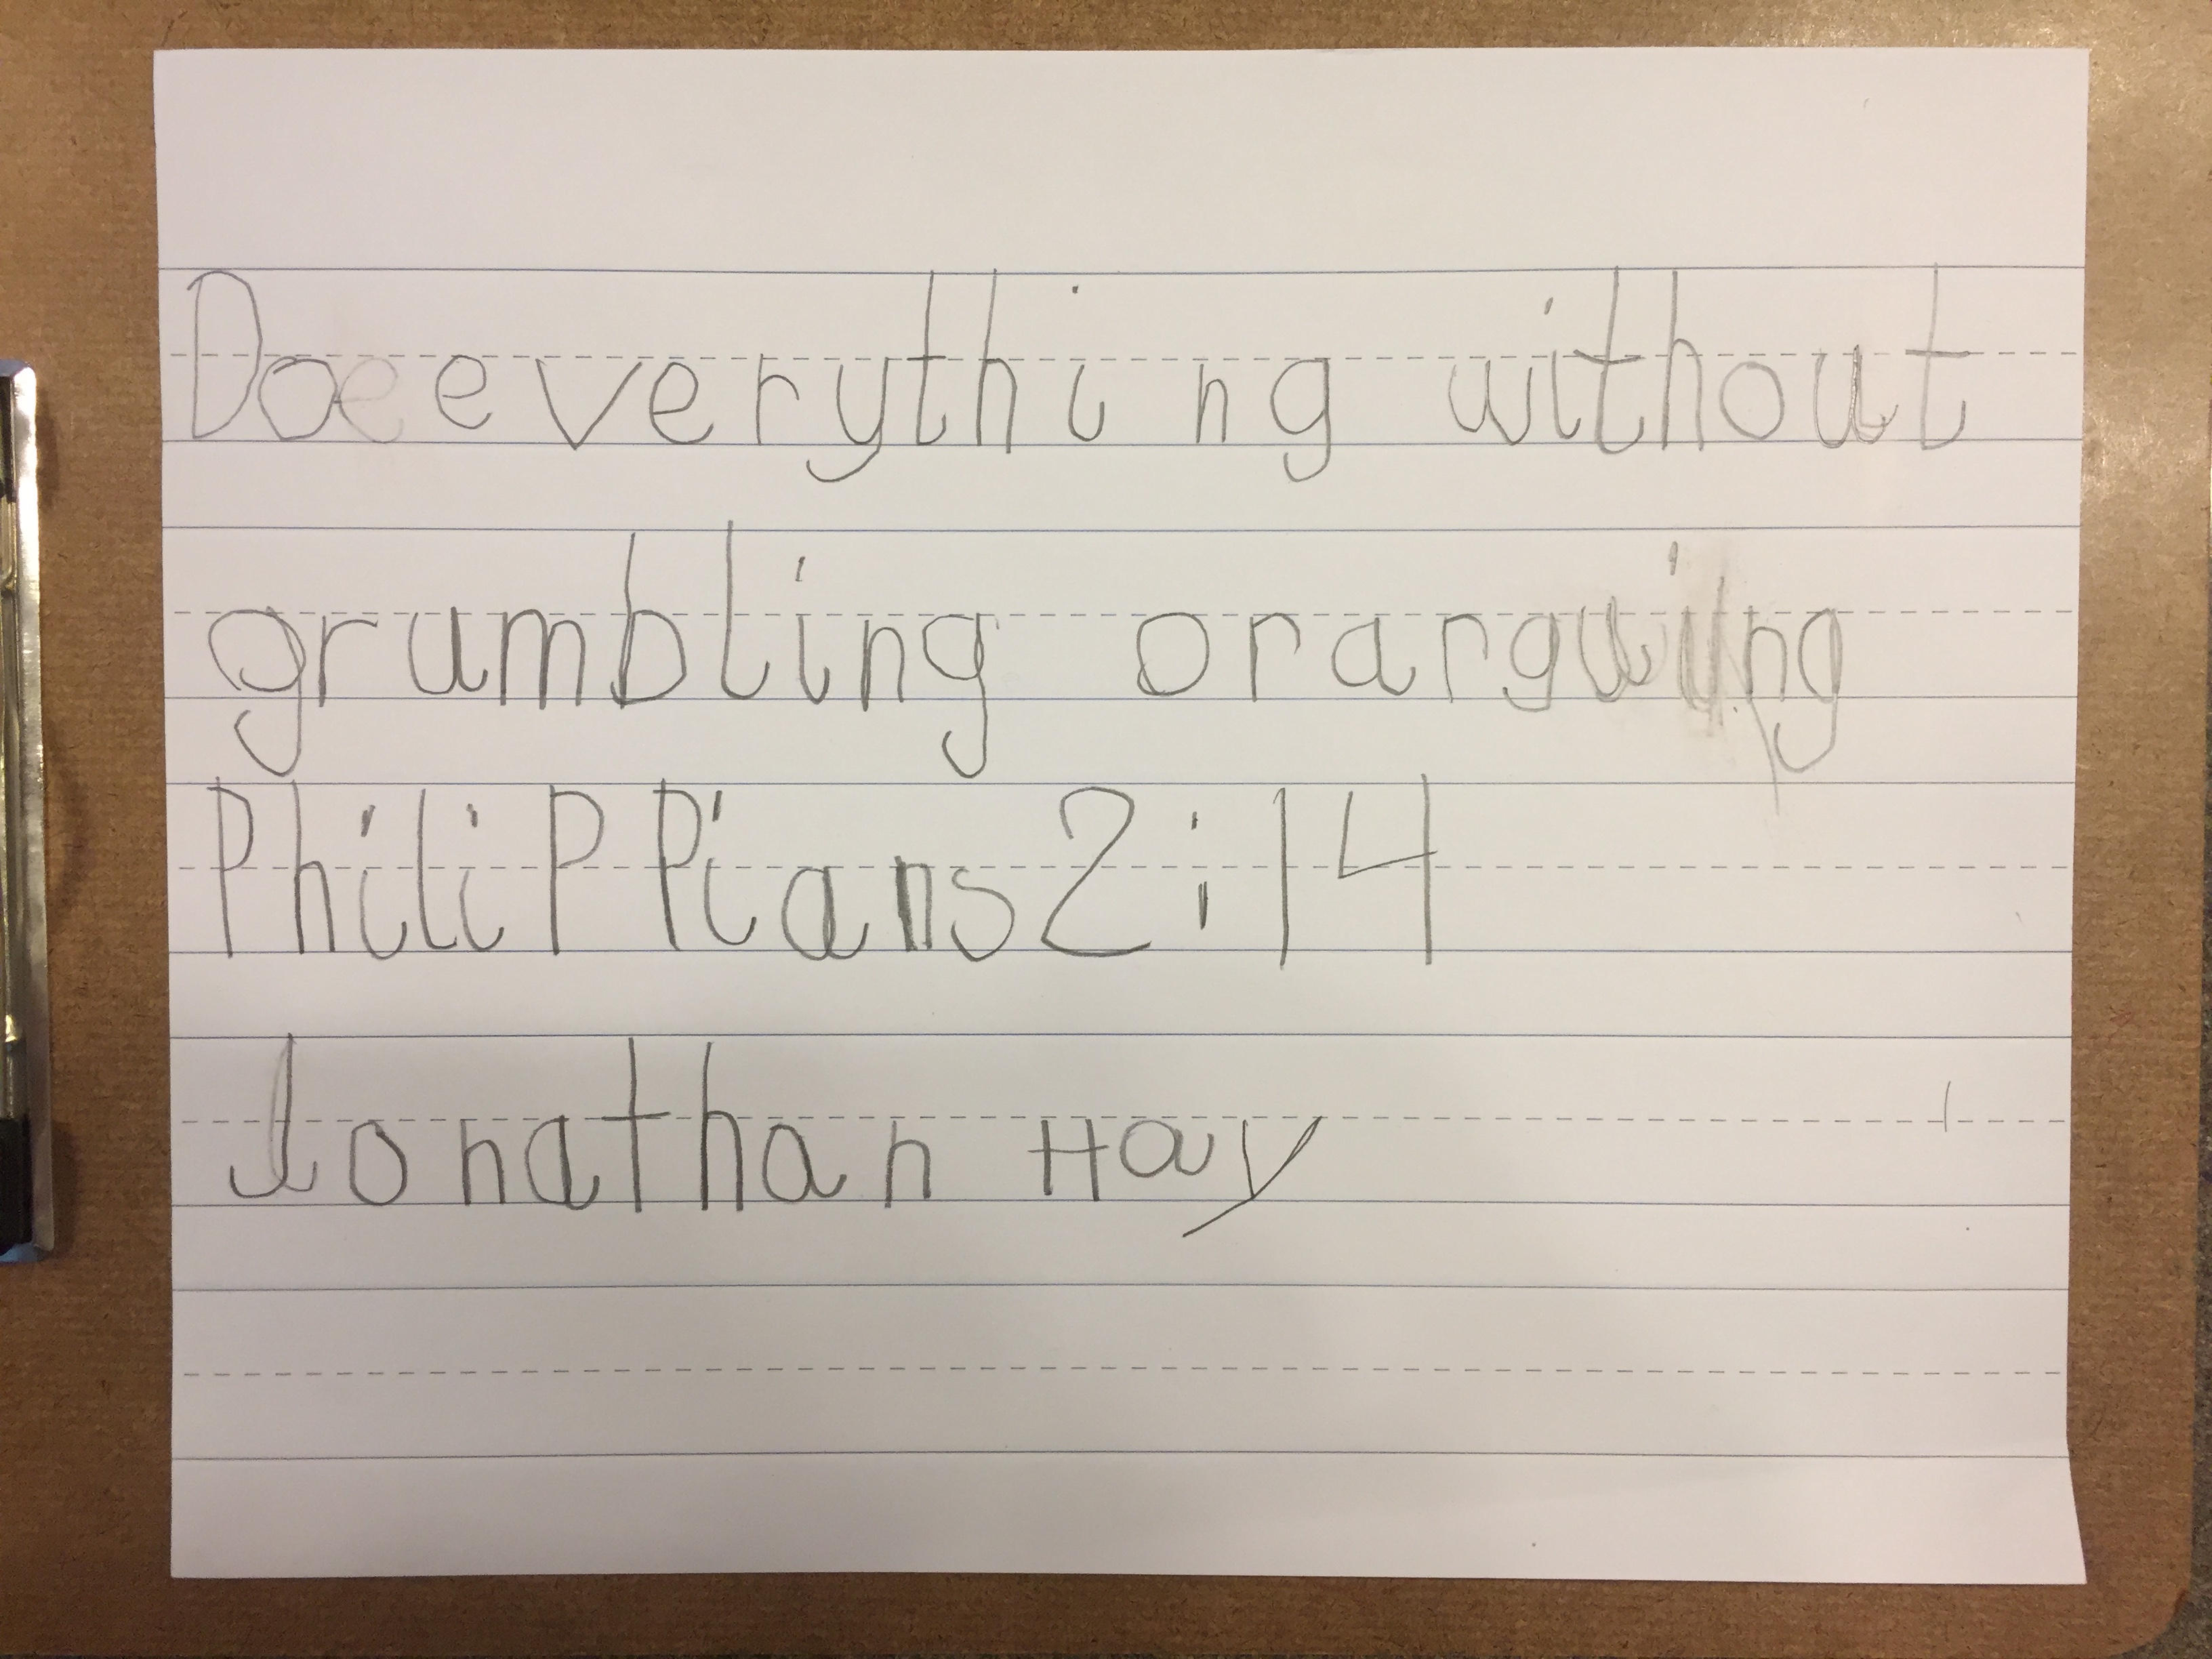 Do everything without
grumbling or arguing
PhiliPPians 2:14
Jonathan Hay